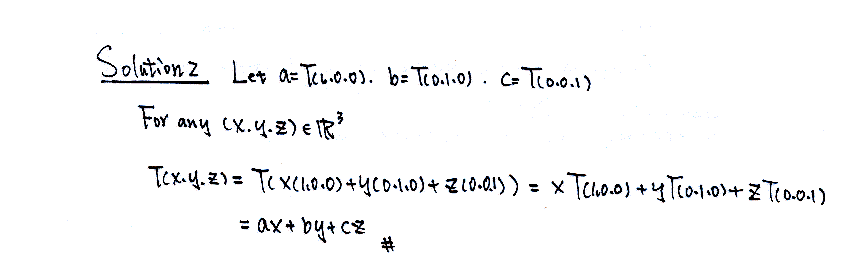 Solution 2 Let a=T(1.0.0). b=T(0.1.0). c=T(0.0.1)
For any (x.y.z)∈ℝ³
T(x.y.z)=T(x(1.0.0)+y(0.1.0)+z(0.0.1))=xT(1.0.0)+yT(0.1.0)+zT(0.0.1)
=ax+by+cz #